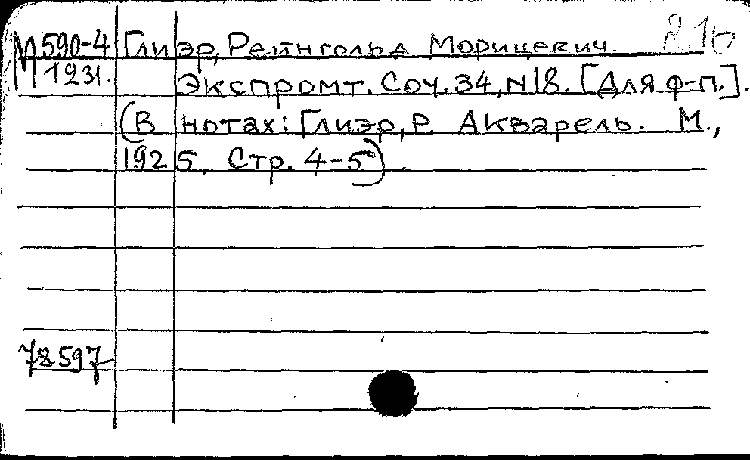 М 590-4 Глиэр, Рейнгольд Морицевич.
1931. Экспромт. Соч. 34, N18. [Для ф-п.].
(В нотах: Глиэр, Р. Акварель. М.,
1925. Стр. 4-5).
78597